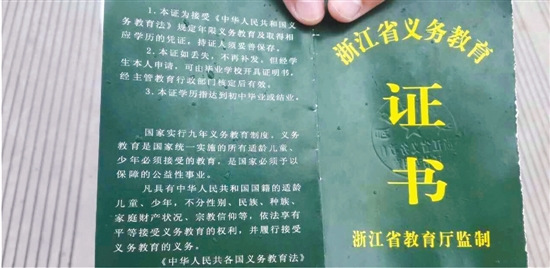 1.本证为接受《中华人民共和国义
务教育法》规定年限义务教育及取得相
应学历的凭证,持证人须妥善保存。
2.本证如丢失,不再补发,但经学
生本人申请,可由毕业学校开具证明书,
经主管教育行政部门核定后有效。
3.本证学历指达到初中毕业或结业。
国家实行九年义务教育制度。义务
教育是国家统一实施的所有适龄儿童、
少年必须接受的教育,是国家必须予以
保障的公益性事业。
凡具有中华人民共和国国籍的适龄
儿童、少年,不分性别、民族、种族、
家庭财产状况、宗教信仰等,依法享有
平等接受义务教育的权利,并履行接受
义务教育的义务。
《中华人民共各国义务教育法》
浙江省义务教育
证
书
浙江省教育厅监制